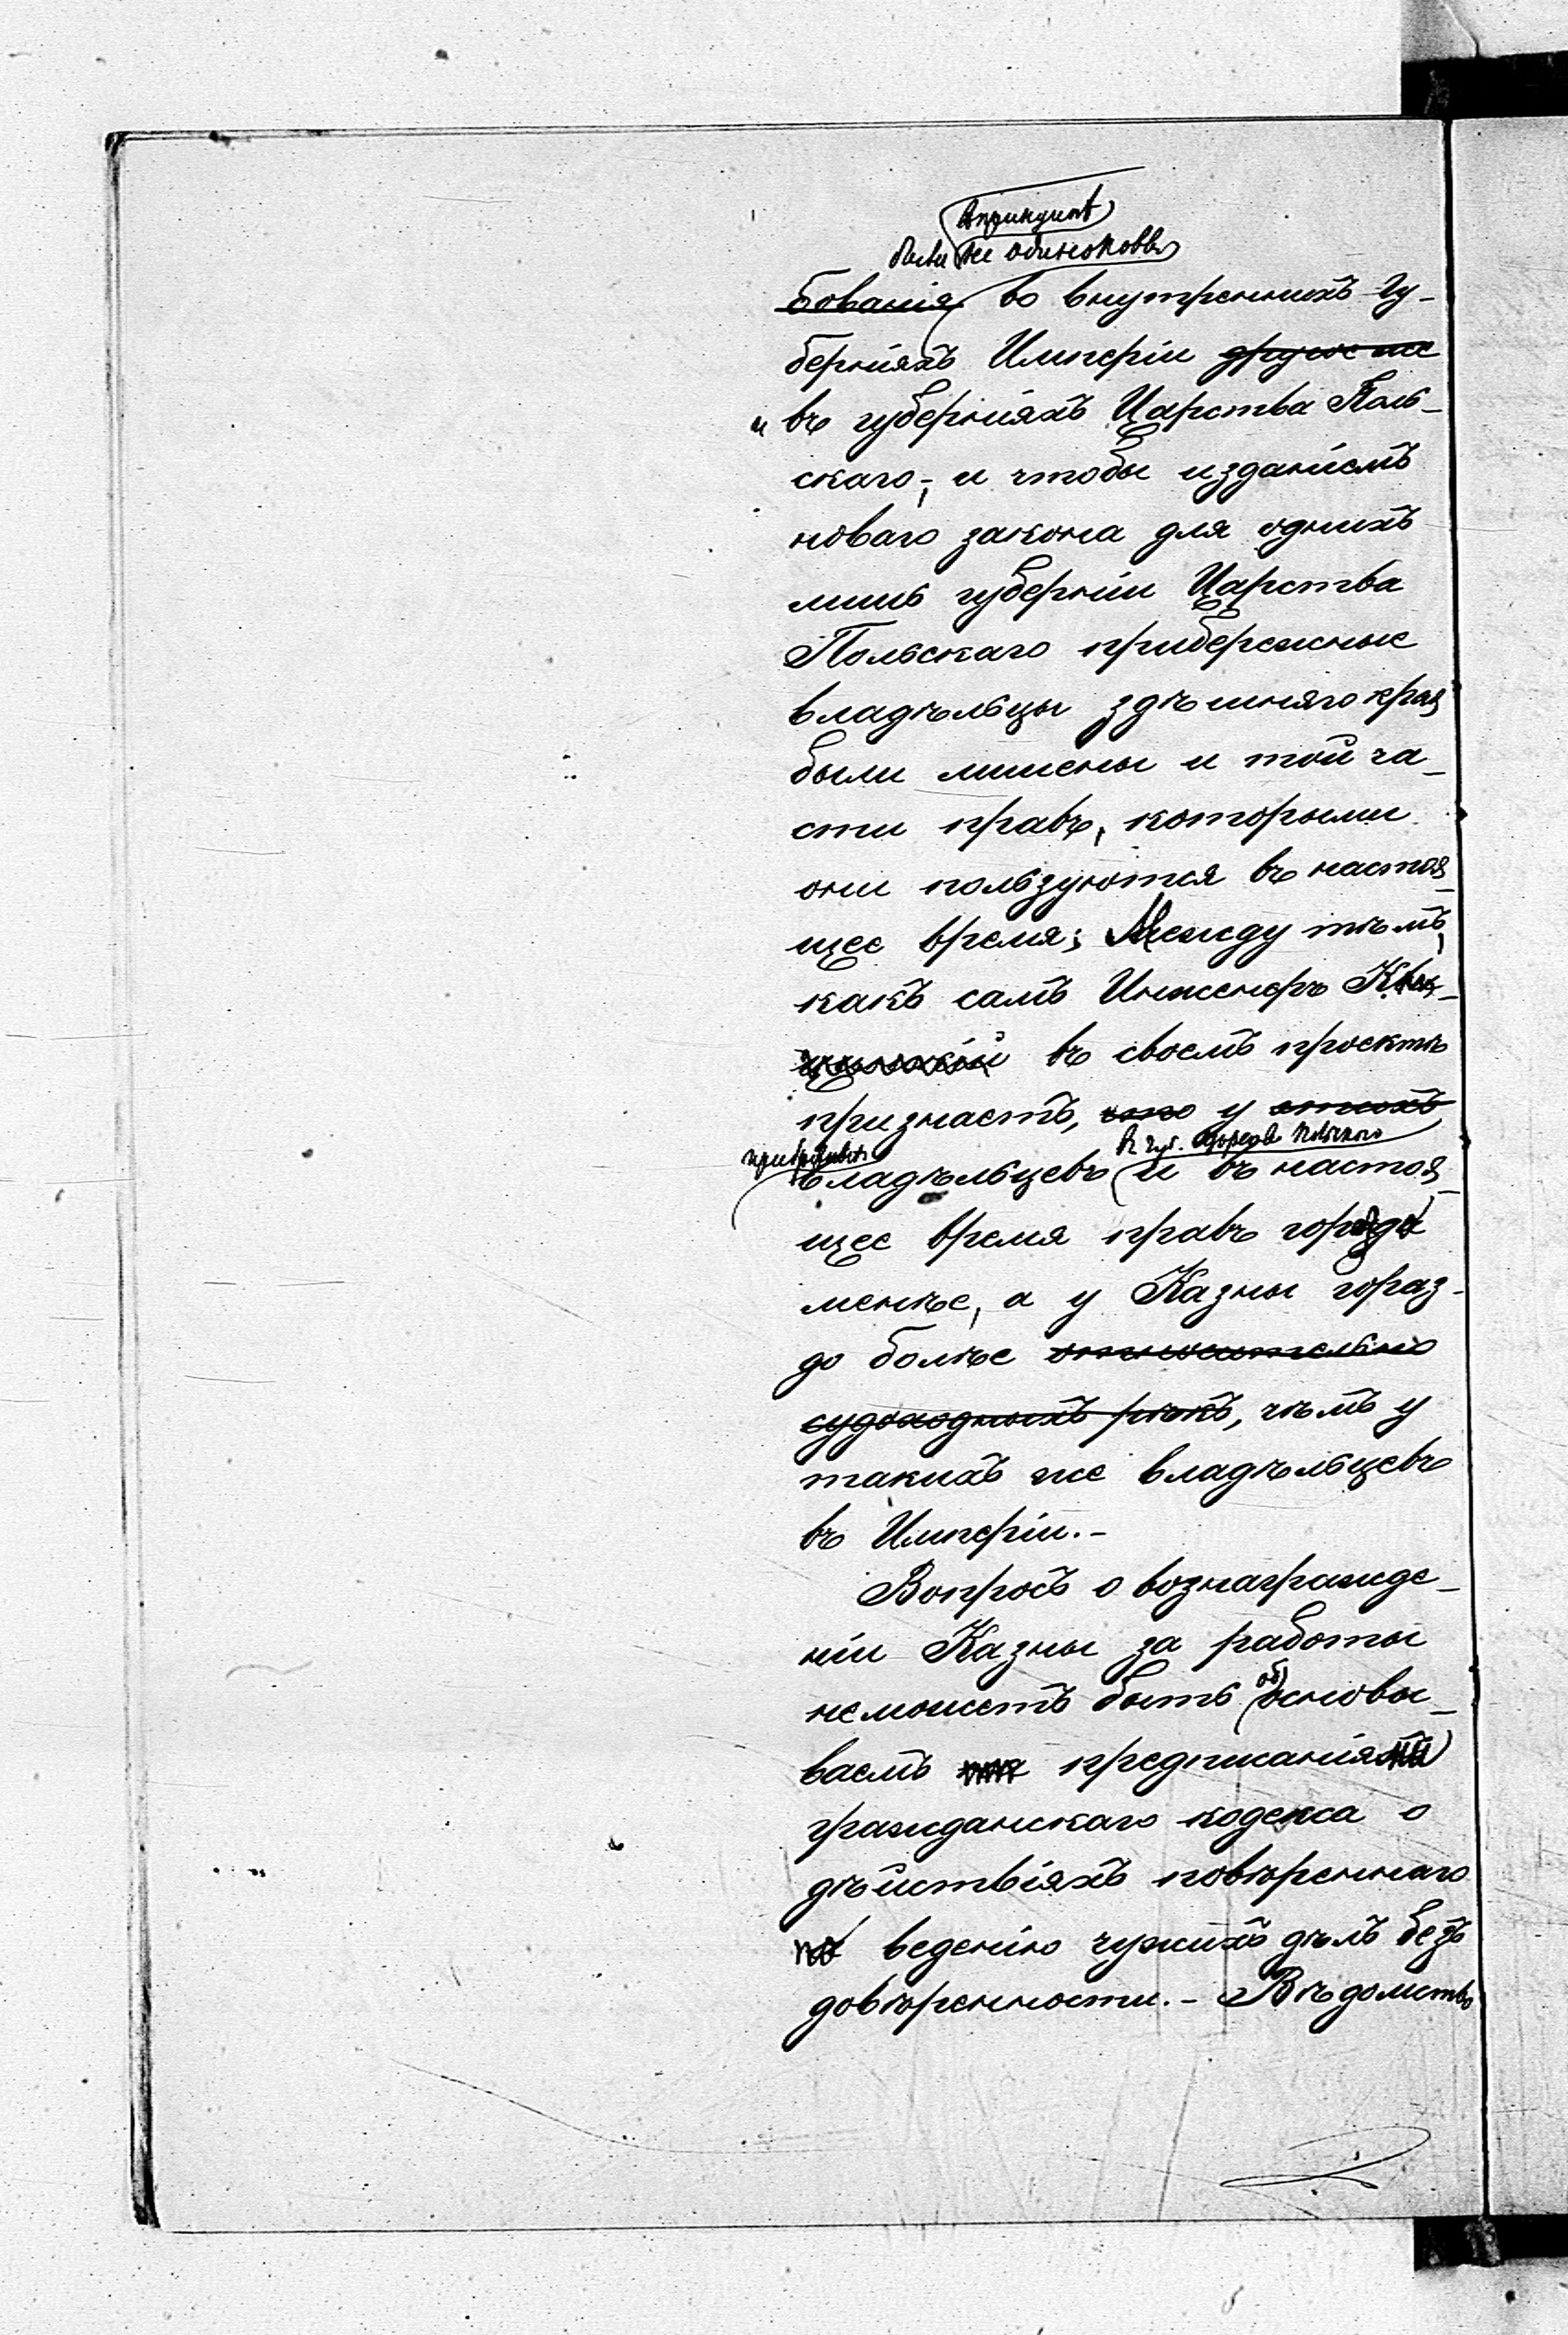 въ принципѣ
были не одинаковы
бованія во внутреннихъ гу-
берніяхъ Имперіи другое же
и въ губерніяхъ Царства Поль-
скаго,- и чтобы изданіемъ
новаго закона для однихъ
лишь губерній Царства
Польскаго прибережные
владѣльцы здѣшняго края
были лишены и той ча-
сти правъ, которыми
они пользуются въ настоя-
щее время; Между тѣмъ,
какъ самъ Инженеръ
въ своемъ проектѣ
признаетъ, что у этихъ
въ губ. Царства Польскаго
владѣльцевъ и въ настоя-
щее время правъ гораздо
менѣе, а у Казны гораз-
до болѣе относительно
судоходныхъ рѣкъ, чѣмъ у
такихъ же владѣльцевъ
въ Имперіи.-
Вопросъ о вознагражде-
ніи Казны за работы
об
неможетъ быть основы-
ваемъ предписаніями
гражданскаго кодекса о
дѣйствіяхъ повѣреннаго
по веденію чужихъ дѣлъ безъ
довѣренности.- Вѣдомство